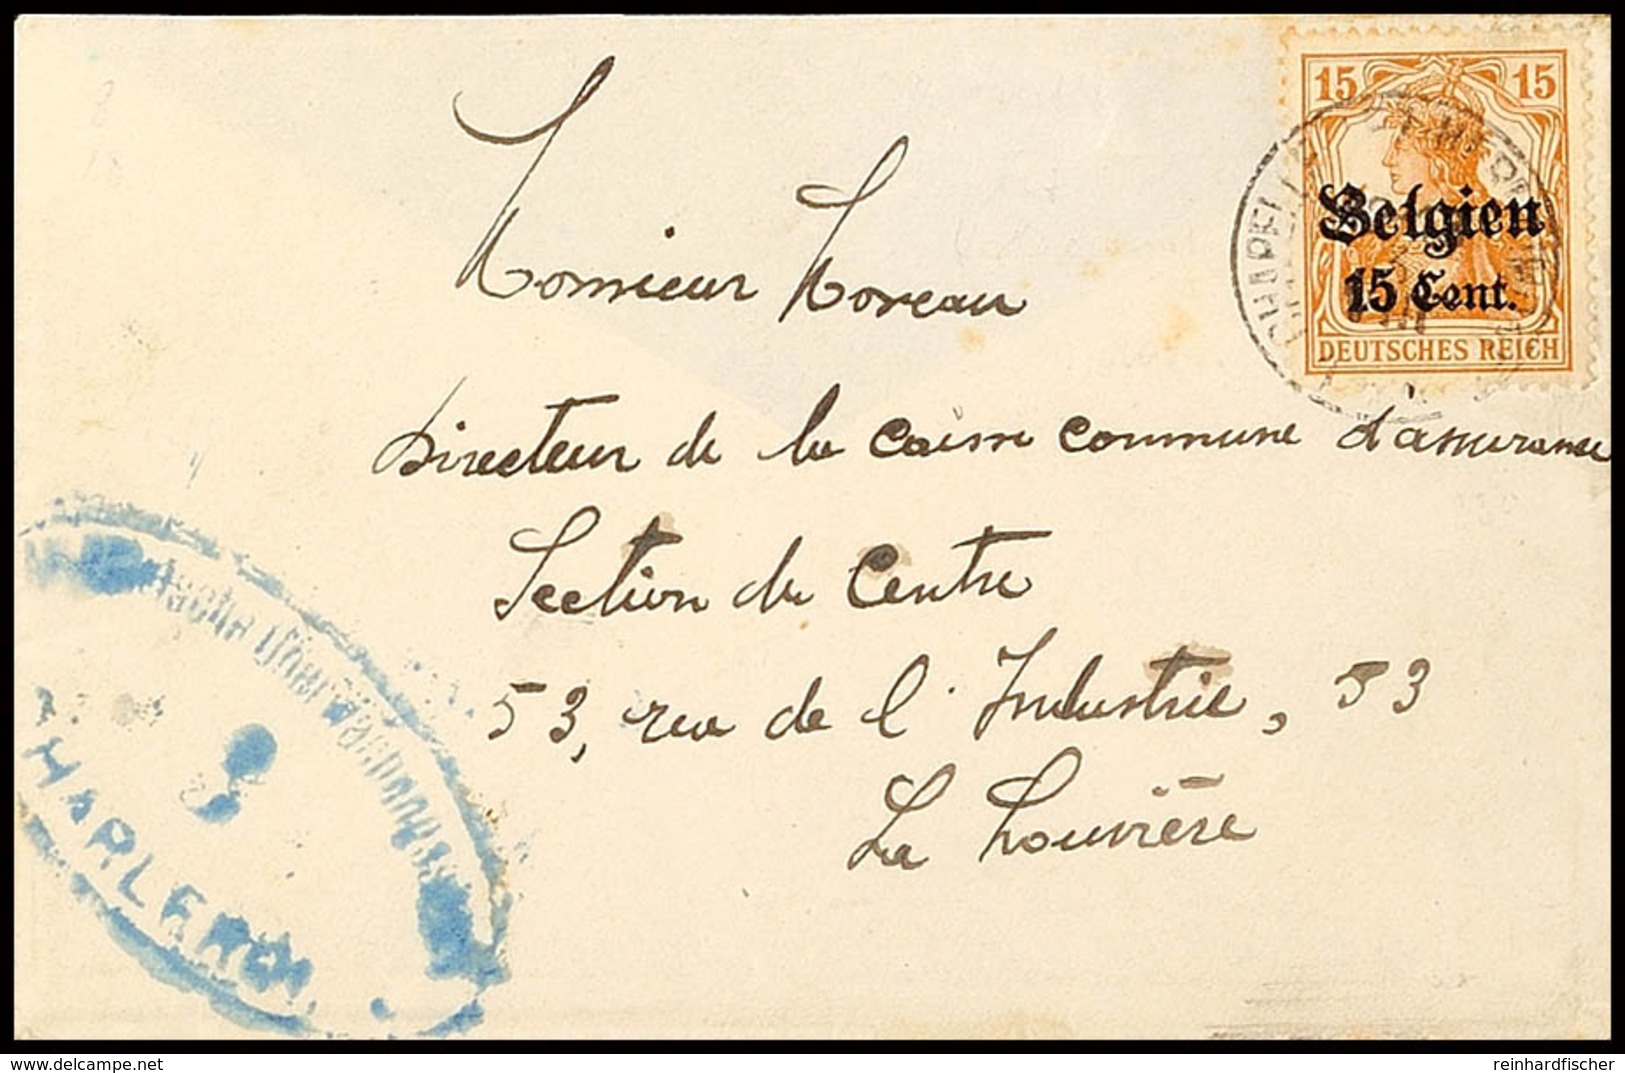 15 15
Belgien
15 Cent.
DEUTSCHES REICH
Monsieur Moreau
Directeur de la Caisse Commune d'assurance
Section du Centre
53, rue de l'Industrie, 53
La Louvière
HARLEROI
delcampe.net
reinhardfischer